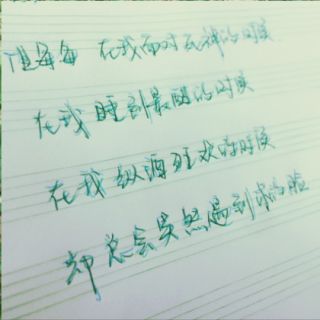 但每每 在我面对死神的时候
在我 睡到最酣的时候
在我 纵酒狂欢的时候
却总会突然遇到你的脸